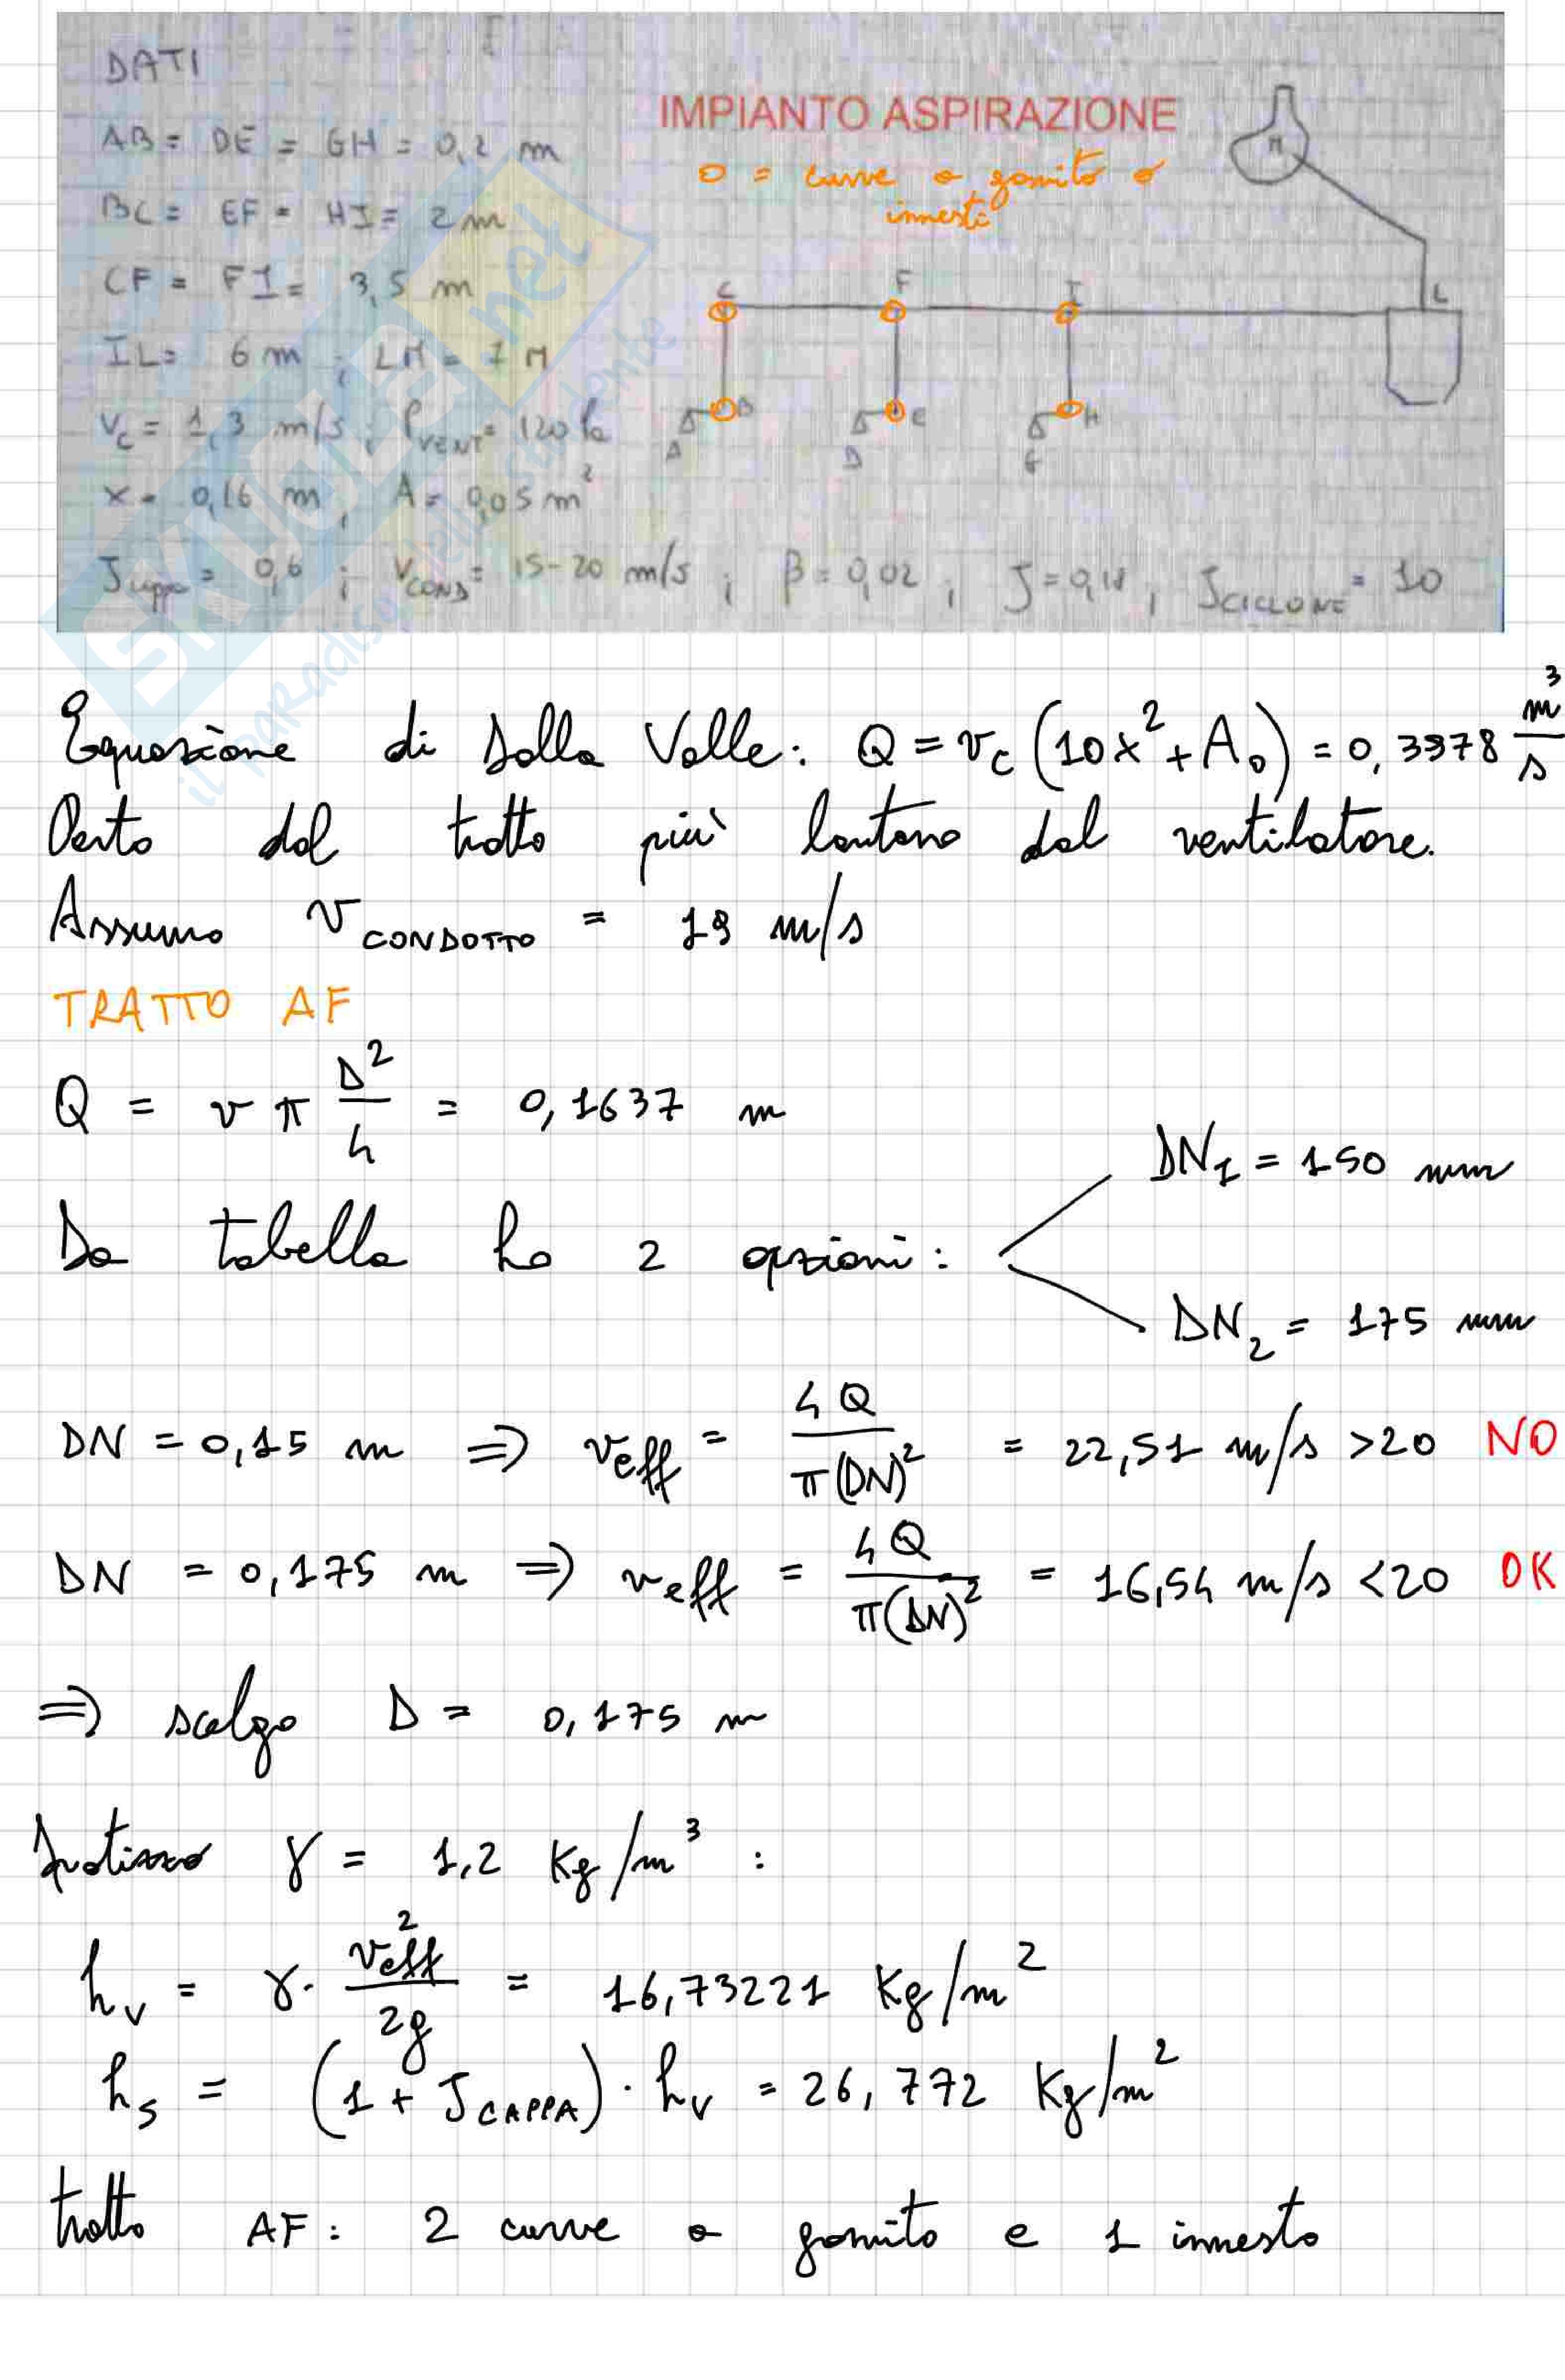 DATI
IMPIANTO ASPIRAZIONE
O = curve a gomito o
innesti
AB = DE = GH = 0,2 m
BC = EF = HI = 2 m
CF = FI = 3,5 m
IL = 6 m ; LM = 7 M
Vc = 1,3 m/s , PVENT = 120 Pa
x = 0,16 m , A = 0,05 m²
Jcappa = 0,6 ; VCOND = 15-20 m/s ; β = 0,02 ; J = 0,18 ; JCICLONE = 10
M
C F I L
B E H
A D G
SKUOLA.net
il paradiso dello studente
Equazione di Dalla Valle: Q = vc (10x² + A₀) = 0,3978 m³/s
Parto dal tratto più lontano dal ventilatore.
Assumo v CONDOTTO = 19 m/s
TRATTO AF
Q = v π D²/4 = 0,1637 m
Da tabella ho 2 opzioni:
DN1 = 150 mm
DN2 = 175 mm
DN = 0,15 m ⇒ veff = 4Q/π(DN)² = 22,51 m/s >20 NO
DN = 0,175 m ⇒ veff = 4Q/π(DN)² = 16,54 m/s <20 OK
⇒ scelgo D = 0,175 m
Ipotizzo γ = 1,2 Kg/m³ :
hv = γ · veff²/2g = 16,73221 Kg/m²
hs = (1 + JCAPPA) · hv = 26,772 Kg/m²
tratto AF: 2 curve a gomito e 1 innesto